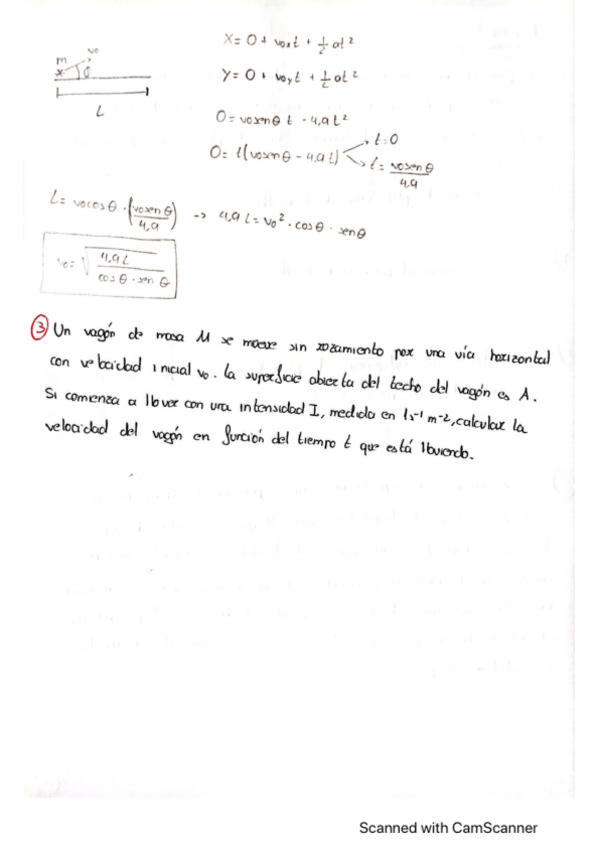 X = 0 + v0x t + 1/2 at²
m v0
x θ
Y = 0 + v0y t + 1/2 at²
L
0 = v0 sen θ t - 4,9 t²
0 = t (v0 sen θ - 4,9 t) → t = 0
→ t = v0 sen θ / 4,9
L = v0 cos θ · (v0 sen θ / 4,9) → 4,9 L = v0² · cos θ · sen θ
v0 = √(4,9 L / cos θ · sen θ)
③ Un vagón de masa M se mueve sin rozamiento por una vía horizontal
con velocidad inicial v0. La superficie abierta del techo del vagón es A.
Si comienza a llover con una intensidad I, medida en l s⁻¹ m⁻², calcular la
velocidad del vagón en función del tiempo t que está lloviendo.
Scanned with CamScanner